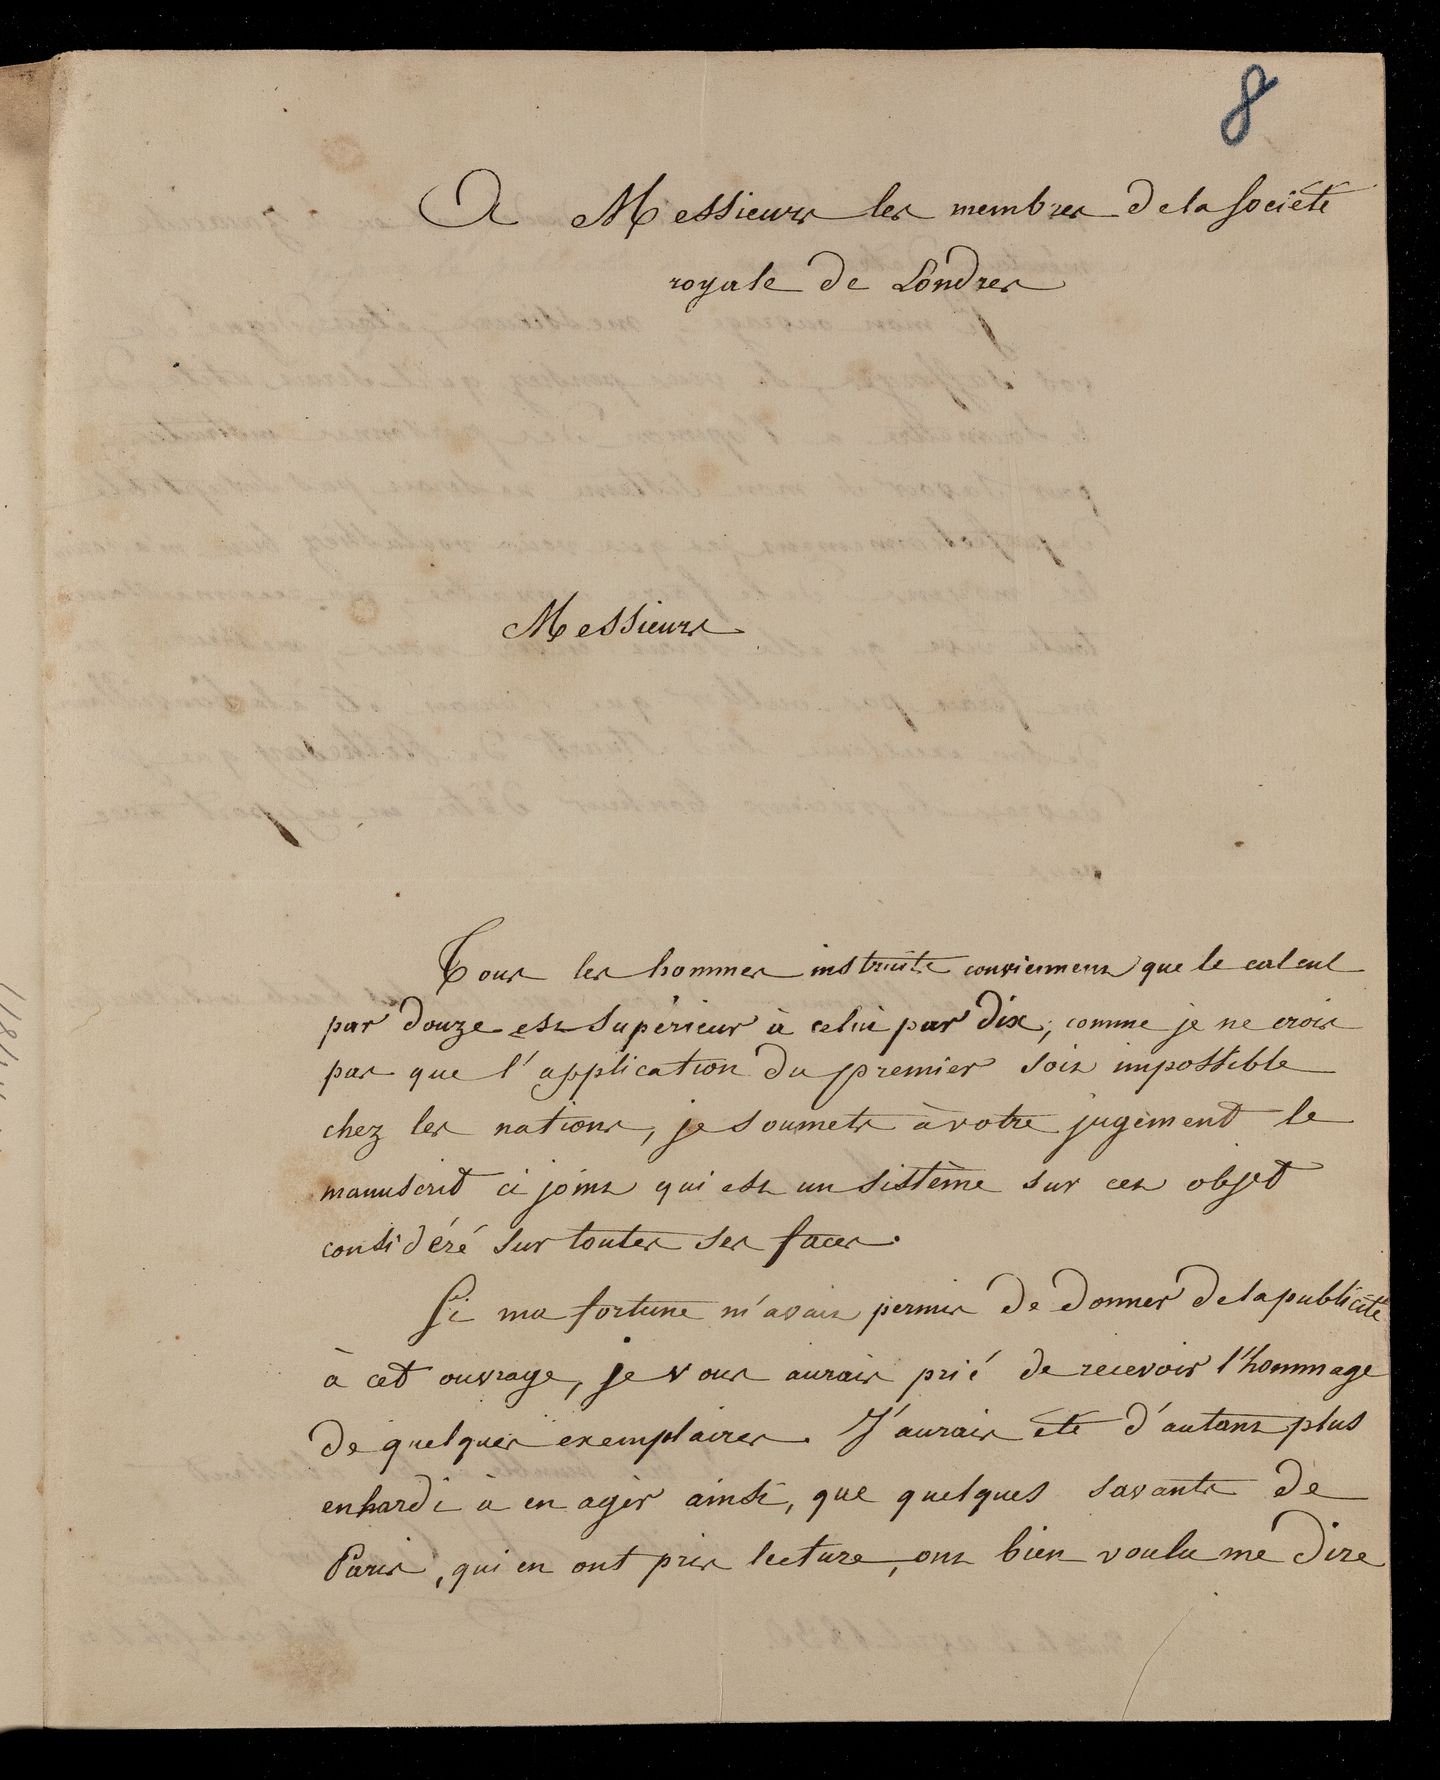 8
A Messieurs les membres de la société
royale de Londres
Messieurs
Tous les hommes instruits conviennent que le calcul
par douze est supérieur à celui par dix, comme je ne crois
pas que l'application du premier soit impossible
chez les nations, je soumets à votre jugement le
manuscrit ci joint qui est un sistême sur cet objet
considéré sur toutes ses faces.
Si ma fortune m'avait permis de donner de la publicité
à cet ouvrage, je vous aurais prié de recevoir l'hommage
de quelques exemplaires. J'aurais été d'autant plus
enhardi à en agir ainsi, que quelques savants de
Paris, qui en ont pris lecture, ont bien voulu me dire